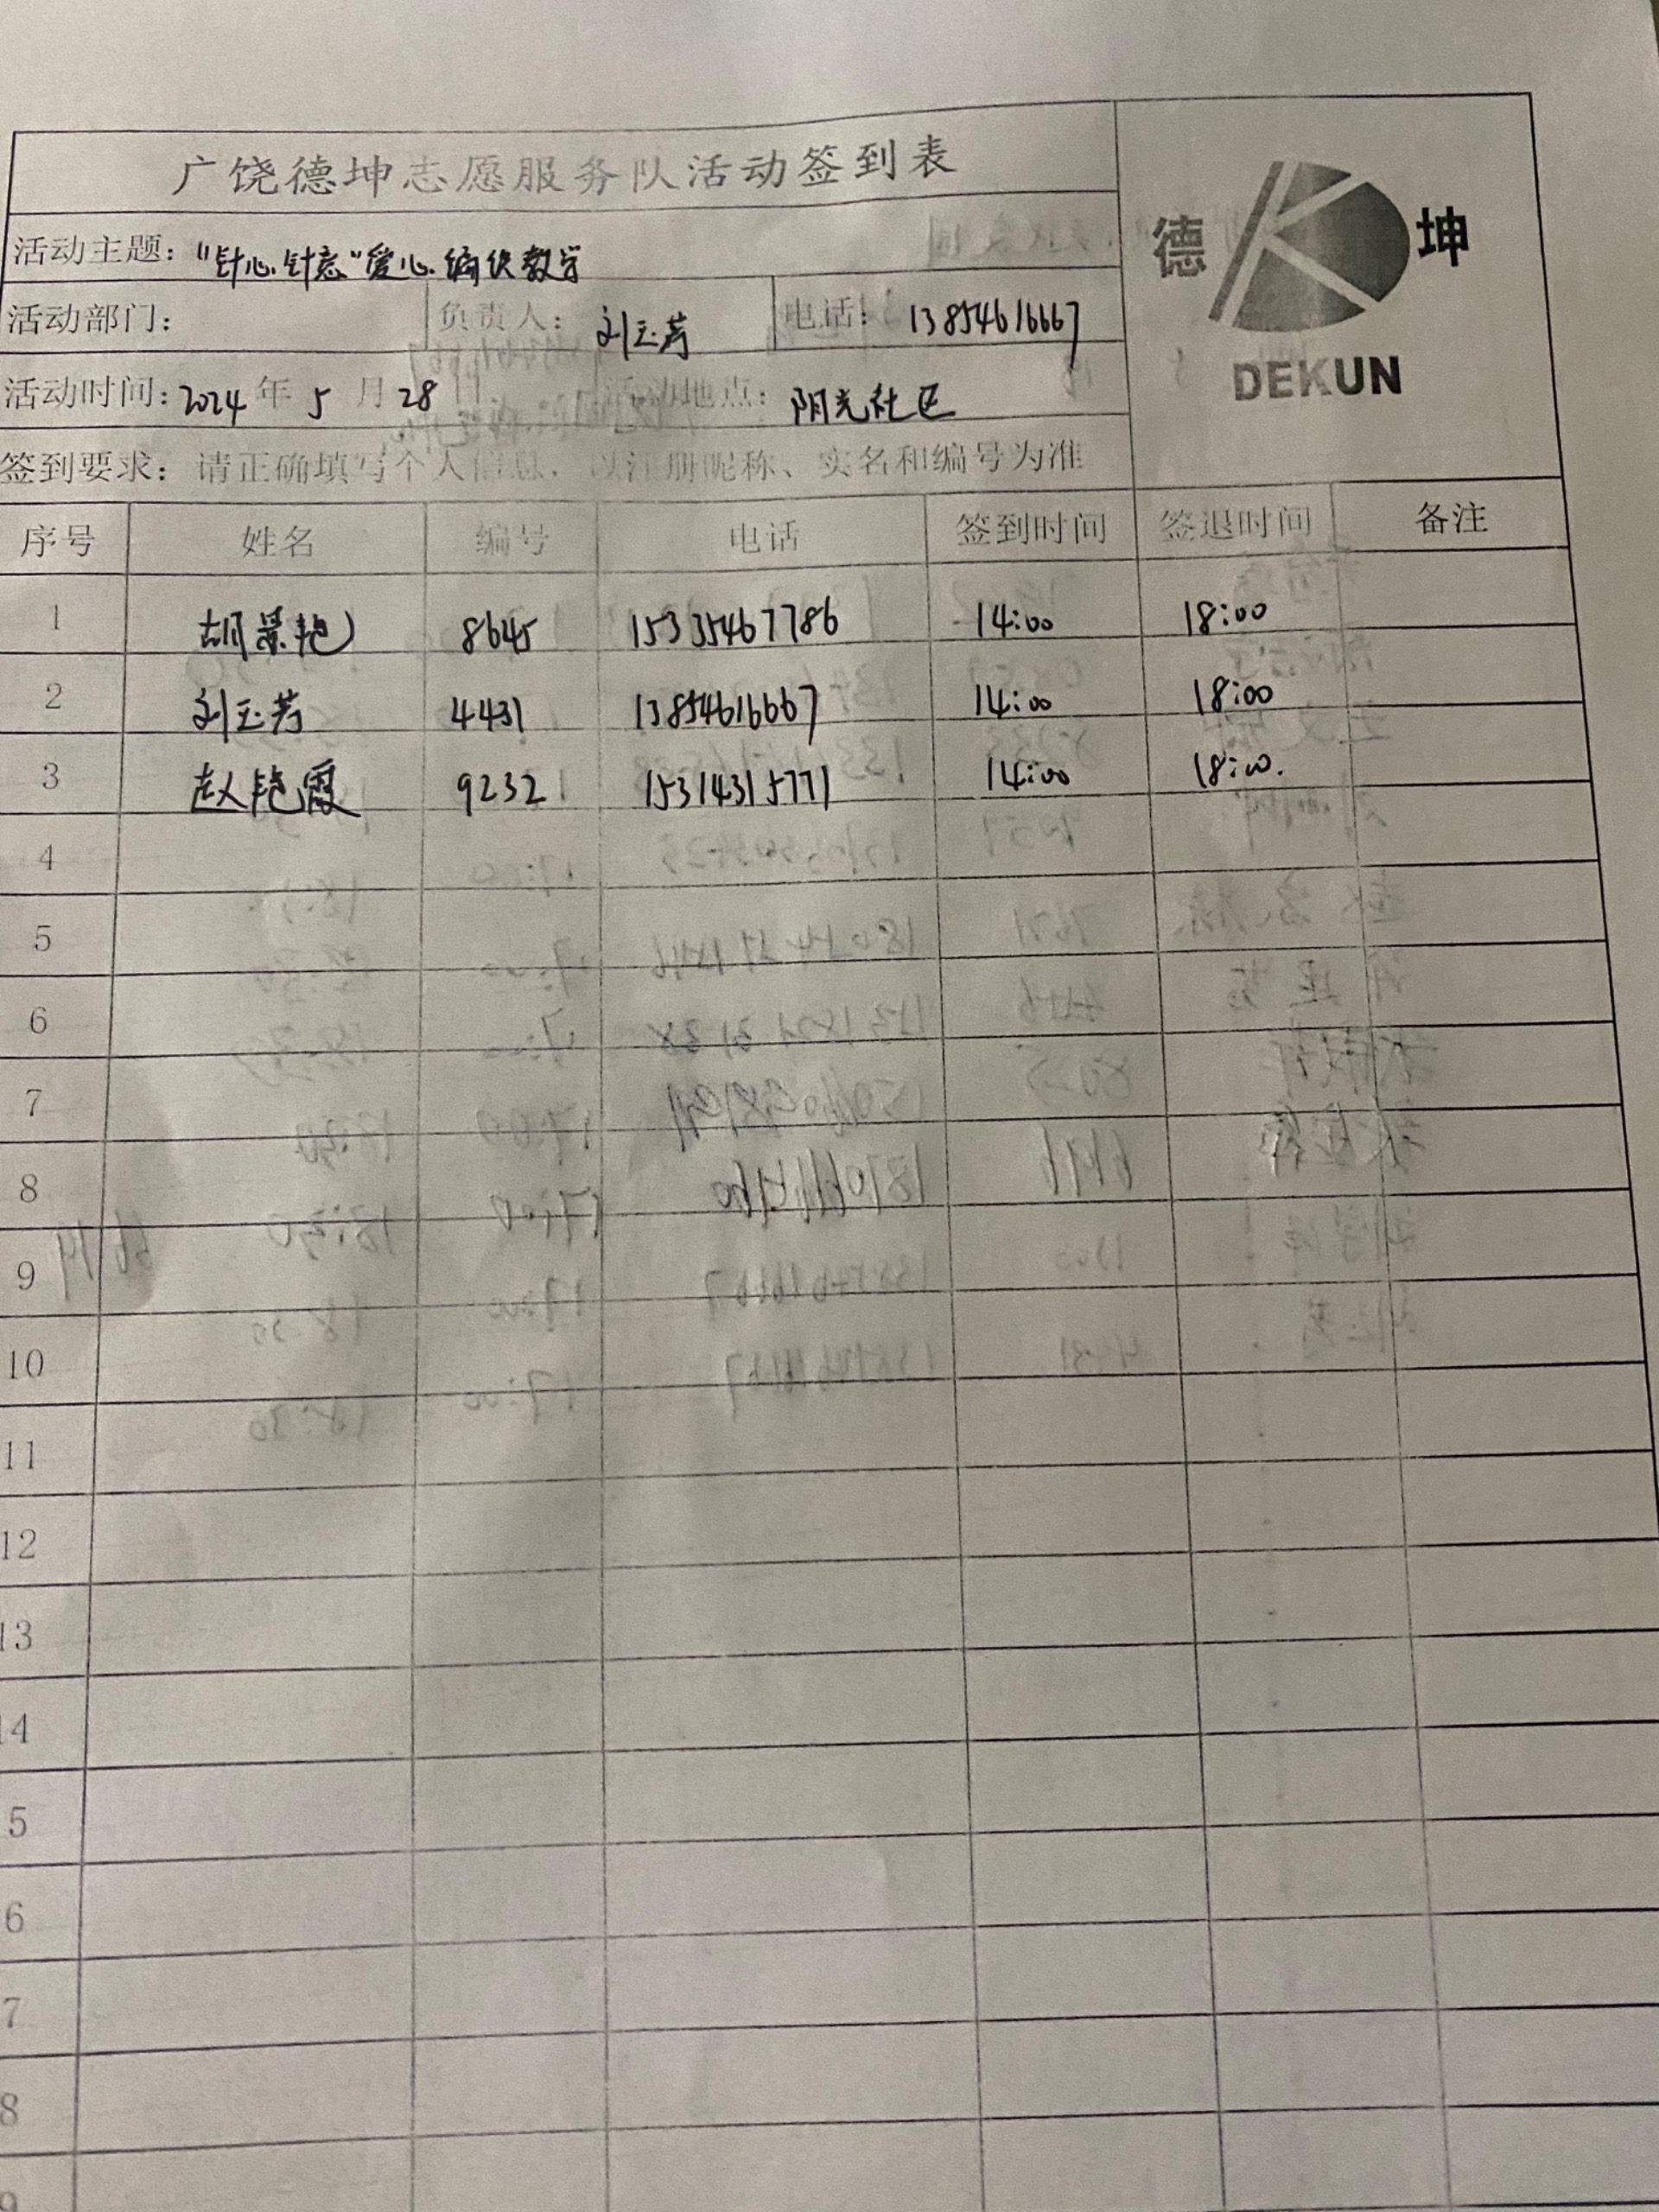 广饶德坤志愿服务队活动签到表
德 坤
DEKUN
活动主题："针心针意"爱心编织教学
活动部门： 负责人：刘玉芳 电话：13854616667
活动时间：2024年5月28日 活动地点：阳光社区
签到要求：请正确填写个人信息，以注册昵称、实名和编号为准
序号 姓名 编号 电话 签到时间 签退时间 备注
1 胡景艳 8645 15335467786 14:00 18:00
2 刘玉芳 4431 13854616667 14:00 18:00
3 赵艳霞 9232 15314315771 14:00 18:00.
4
5
6
7
8
9
10
11
12
13
14
5
6
7
8
9